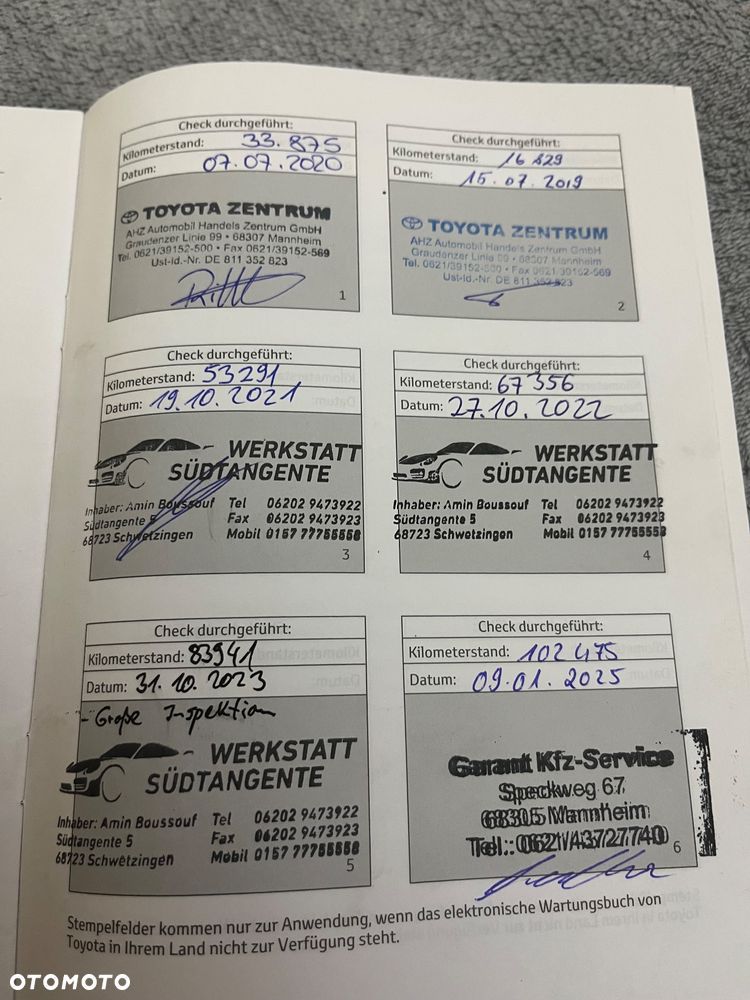 Check durchgeführt:
Kilometerstand: 33.875
Datum: 07.07.2020
TOYOTA ZENTRUM
AHZ Automobil Handels Zentrum GmbH
Graudenzer Linie 99 • 68307 Mannheim
Tel. 0621/39152-500 • Fax 0621/39152-569
Ust-Id.-Nr. DE 811 352 823
1
Check durchgeführt:
Kilometerstand: 16 829
Datum: 15.07.2019
TOYOTA ZENTRUM
AHZ Automobil Handels Zentrum GmbH
Graudenzer Linie 99 • 68307 Mannheim
Tel. 0621/39152-500 • Fax 0621/39152-569
Ust-Id.-Nr. DE 811 352 823
2
Check durchgeführt:
Kilometerstand: 53291
Datum: 19.10.2021
WERKSTATT
SÜDTANGENTE
Inhaber: Amin Boussouf Tel 06202 9473922
Südtangente 5 Fax 06202 9473923
68723 Schwetzingen Mobil 0157 77755558
3
Check durchgeführt:
Kilometerstand: 67356
Datum: 27.10.2022
WERKSTATT
SÜDTANGENTE
Inhaber: Amin Boussouf Tel 06202 9473922
Südtangente 5 Fax 06202 9473923
68723 Schwetzingen Mobil 0157 77755558
4
Check durchgeführt:
Kilometerstand: 83941
Datum: 31.10.2023
- Große Inspektion
WERKSTATT
SÜDTANGENTE
Inhaber: Amin Boussouf Tel 06202 9473922
Südtangente 5 Fax 06202 9473923
68723 Schwetzingen Mobil 0157 77755558
5
Check durchgeführt:
Kilometerstand: 102 475
Datum: 09.01.2025
Garant Kfz-Service
Speckweg 67
68305 Mannheim
Tel.: 0621/43727740
6
Stempelfelder kommen nur zur Anwendung, wenn das elektronische Wartungsbuch von
Toyota in Ihrem Land nicht zur Verfügung steht.
OTOMOTO